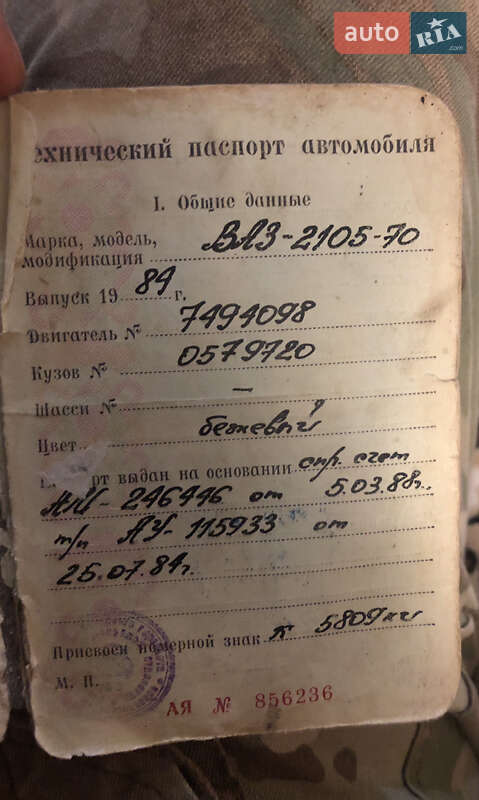 auto RIA.com
ехнический паспорт автомобиля
I. Общие данные
Марка, модель, ВАЗ-2105-70
модификация
Выпуск 19 84 г.
Двигатель № 7494098
Кузов № 0579720
Шасси № —
Цвет бежевый
рт выдан на основании спр. счет
246446 от 5.03.88г.
т/п АУ-115933 от
25.07.84г.
Присвоен номерной знак 5809
М. П.
АЯ № 856236